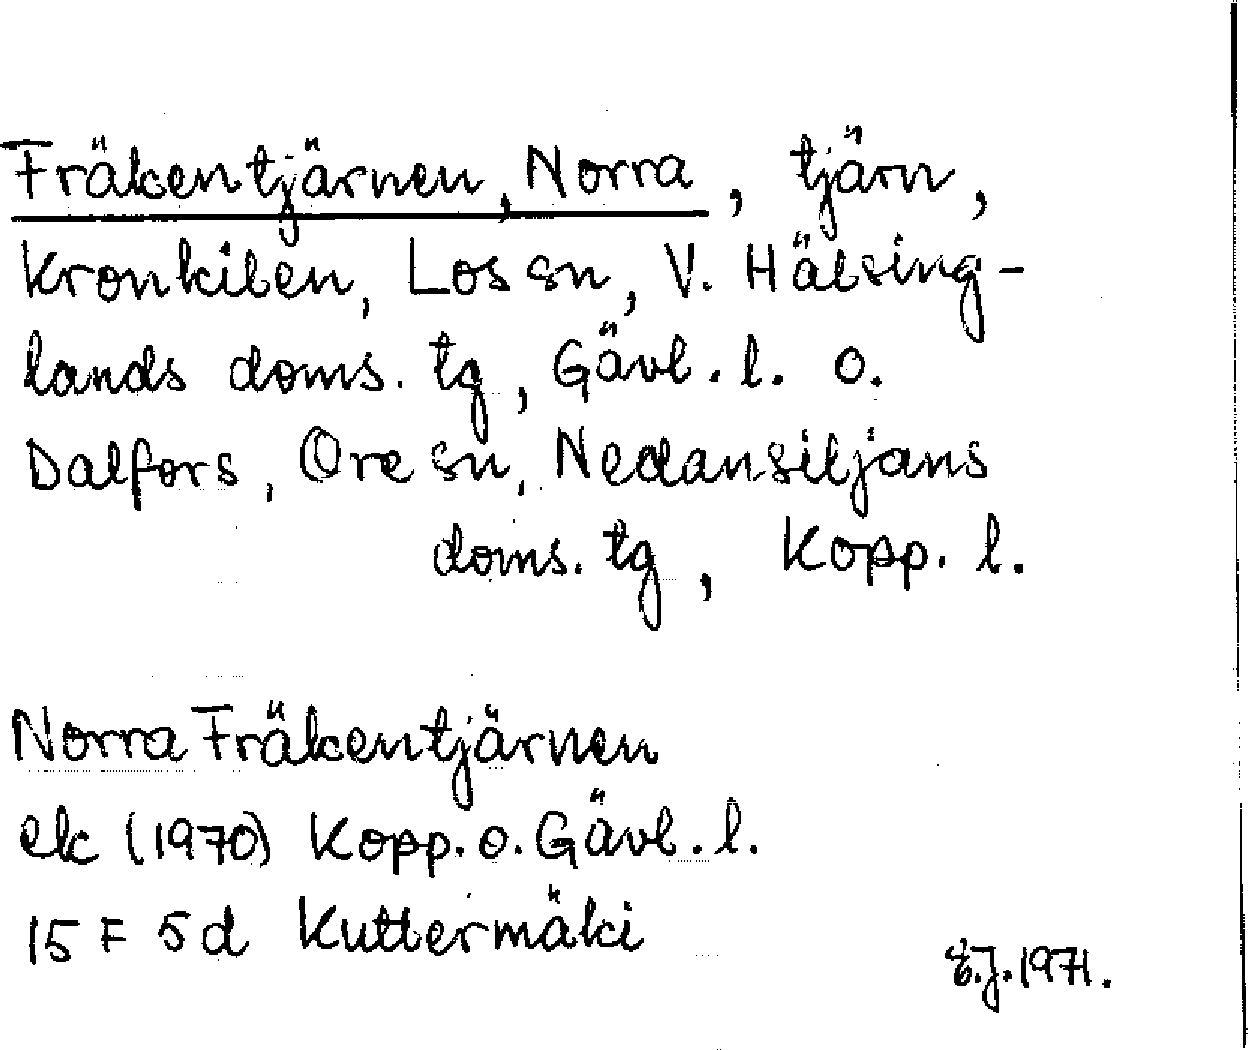 Fräkentjärnen, Norra, tjärn,
Kronkilen, Los sn, V. Hälsing-
lands doms. tg, Gävl. l. o.
Dalfors, Ore sn, Nedansiljans
doms. tg, Kopp. l.
Norra Fräkentjärnen
ek (1970) Kopp. o. Gävl. l.
15 F 5 d Kuttermäki
E.J. 1971.